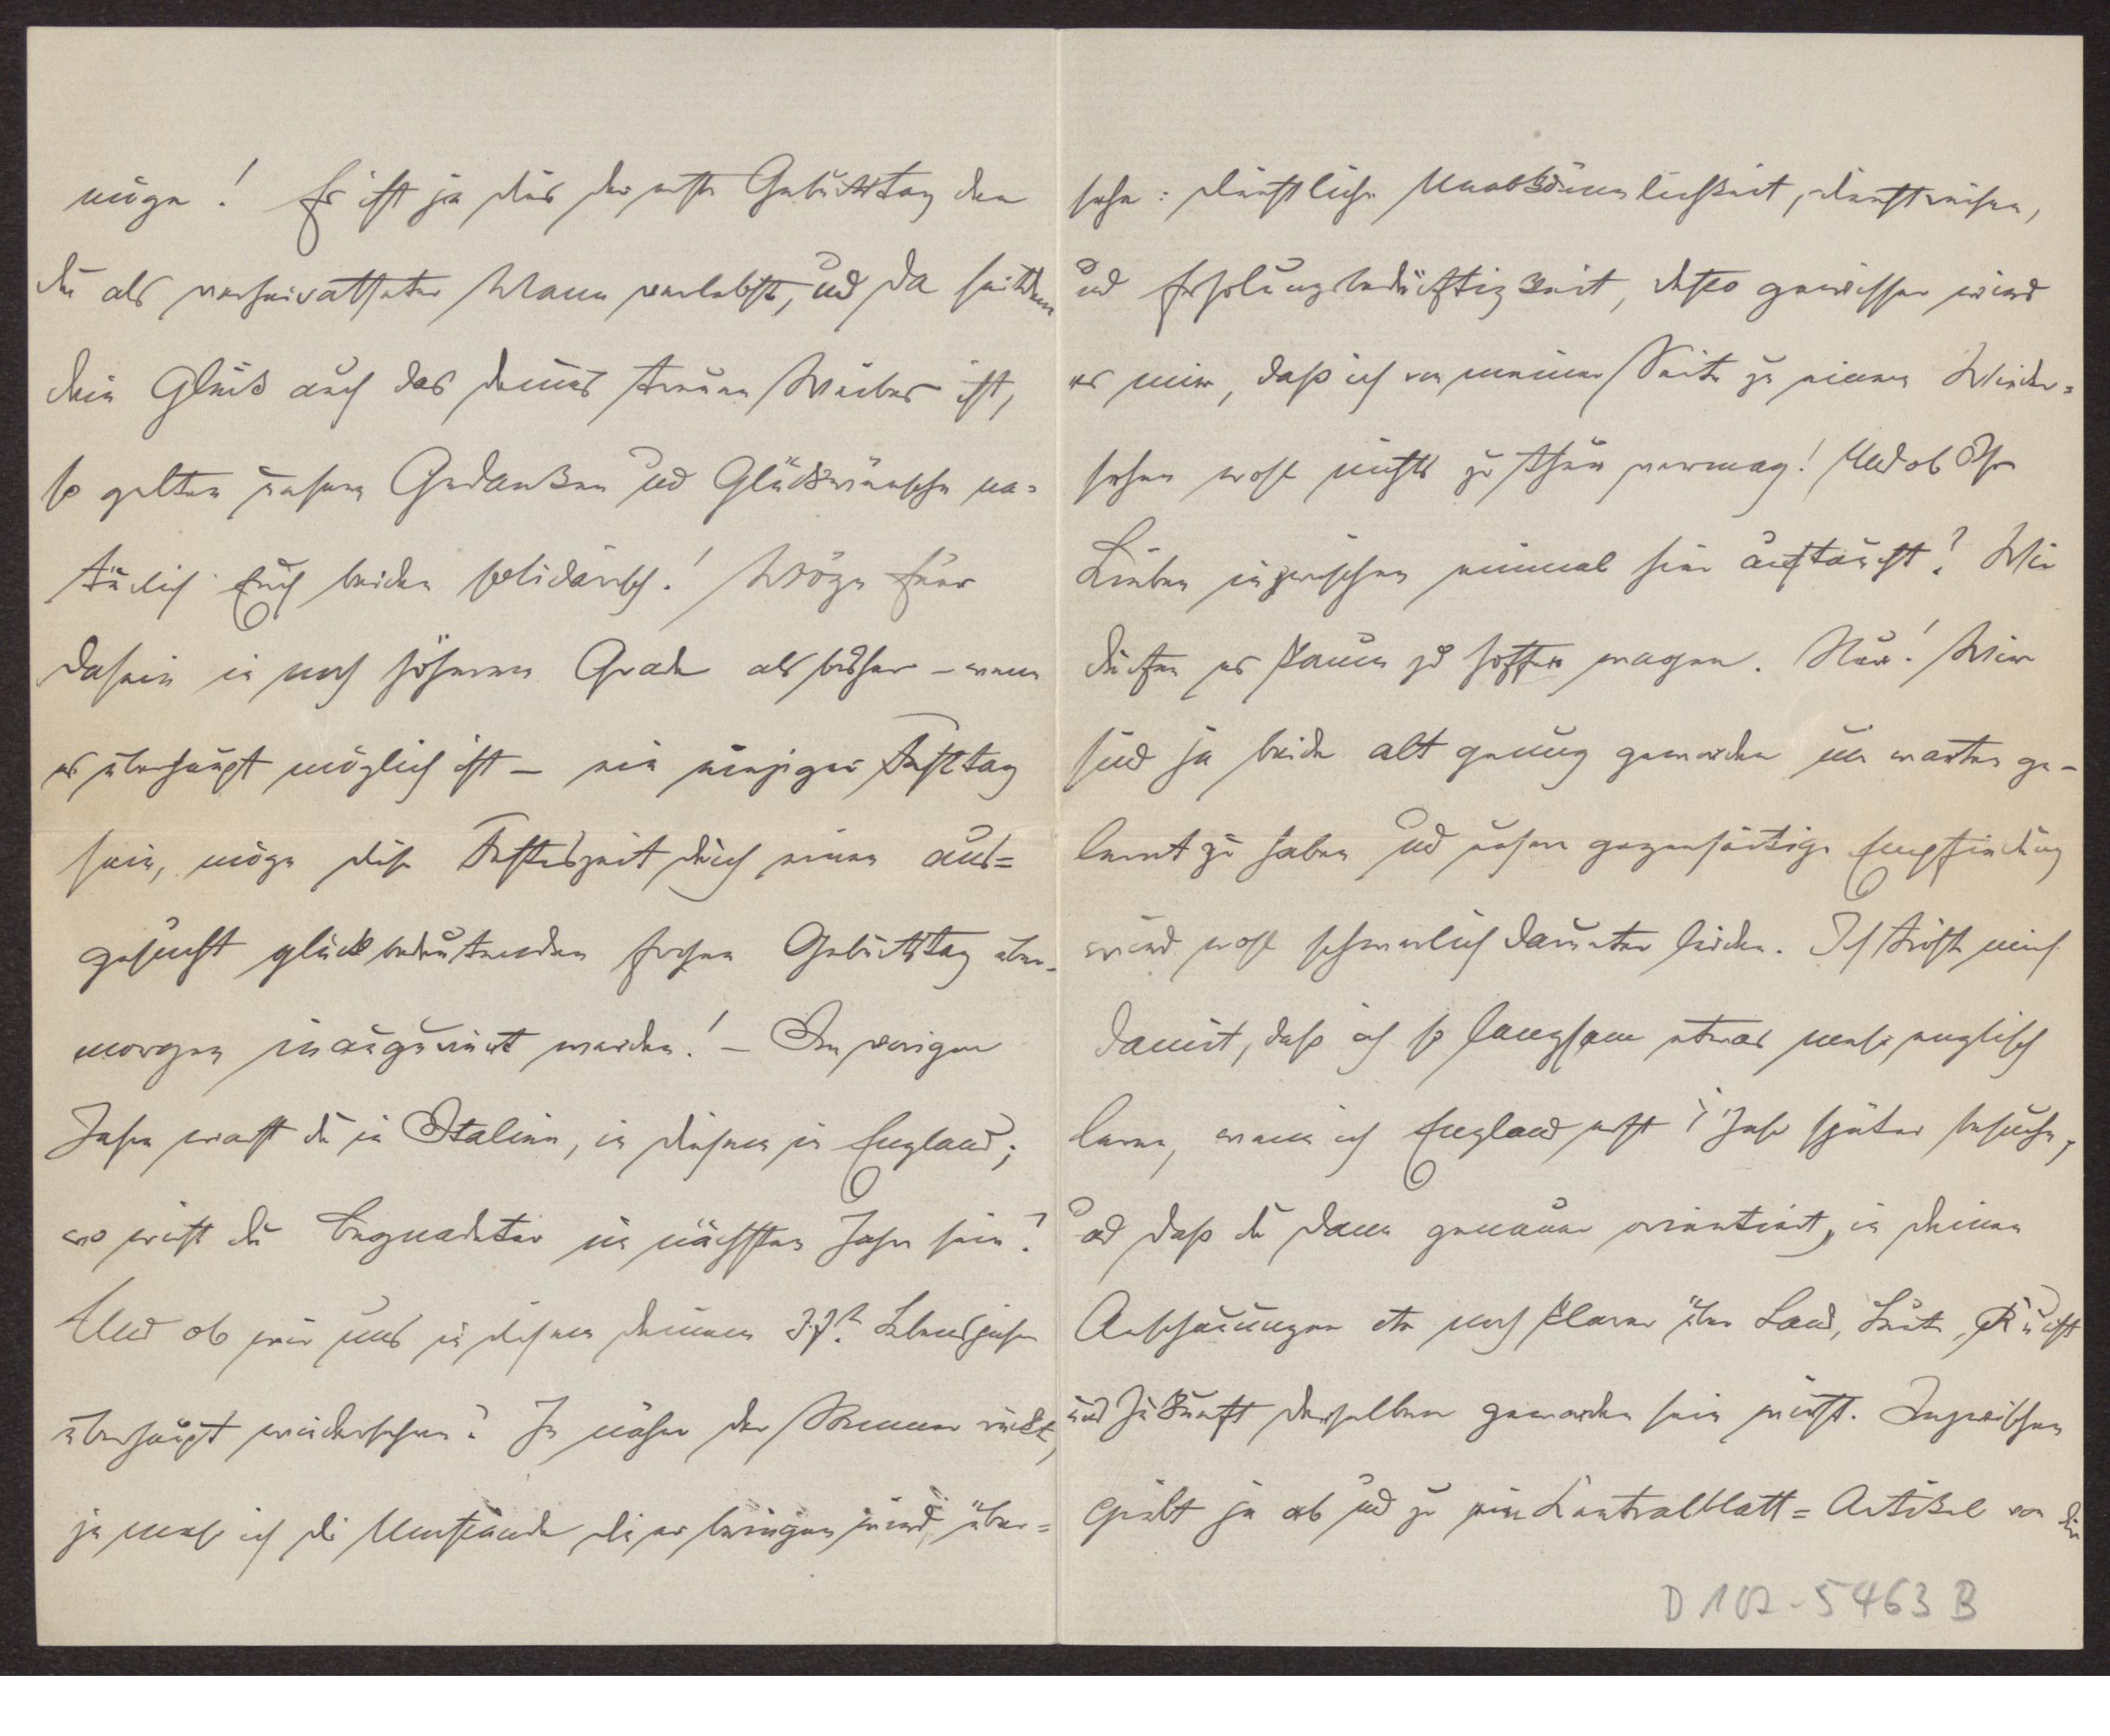 möge! Es ist ja dies der erste Geburtstag den
du als verheiratheter Mann verlebst, und da seitdem
dein Glück auch das deines treuen Weibes ist,
so gelten unsere Gedanken und Glückwünsche na-
türlich Euch beiden solidarisch! Möge Euer
Dasein in noch höherem Grade als bisher – wenn
es überhaupt möglich ist – ein einziger Festtag
sein, möge diese Festeszeit durch einen aus=
gesucht glückbedeutenden frohen Geburtstag über-
morgen inaugurirt werden! – Im vorigen
Jahre warst du in Italien, in diesem in England;
wo wirst du Begnadeter im nächsten Jahre sein?
Und ob wir uns in diesem deinem Lebensjahre
überhaupt wiedersehen? Je näher der Sommer rückt,
je mehr ich die Umstände die er bringen wird, über=
sehe: dienstliche Unabkömmlichkeit, Dienstreisen,
und Erholungsbedürftigkeit, desto gewisser wird
es mir, daß ich von meiner Seite zu einem Wieder=
sehen wohl nichts zu thun vermag! Und ob Ihr
Lieben inzwischen einmal hier auftaucht? Wir
dürfen es kaum zu hoffen wagen. Nun! Wir
sind ja beide alt genug geworden um warten ge-
lernt zu haben und unsere gegenseitige Empfindung
wird wohl schwerlich darunter leiden. Ich tröste mich
damit, daß ich so langsam etwas mehr englisch
lerne, wenn ich England erst 1 Jahr später besuche,
und daß du dann genauer orientirt, in deinen
Anschauungen etc noch klarer über Land, Leute,
und Zukunft derselben geworden sein wirst. Inzwischen
giebt ja ab und zu ein Centralblatt=Artikel von dir
D 102-5463 B